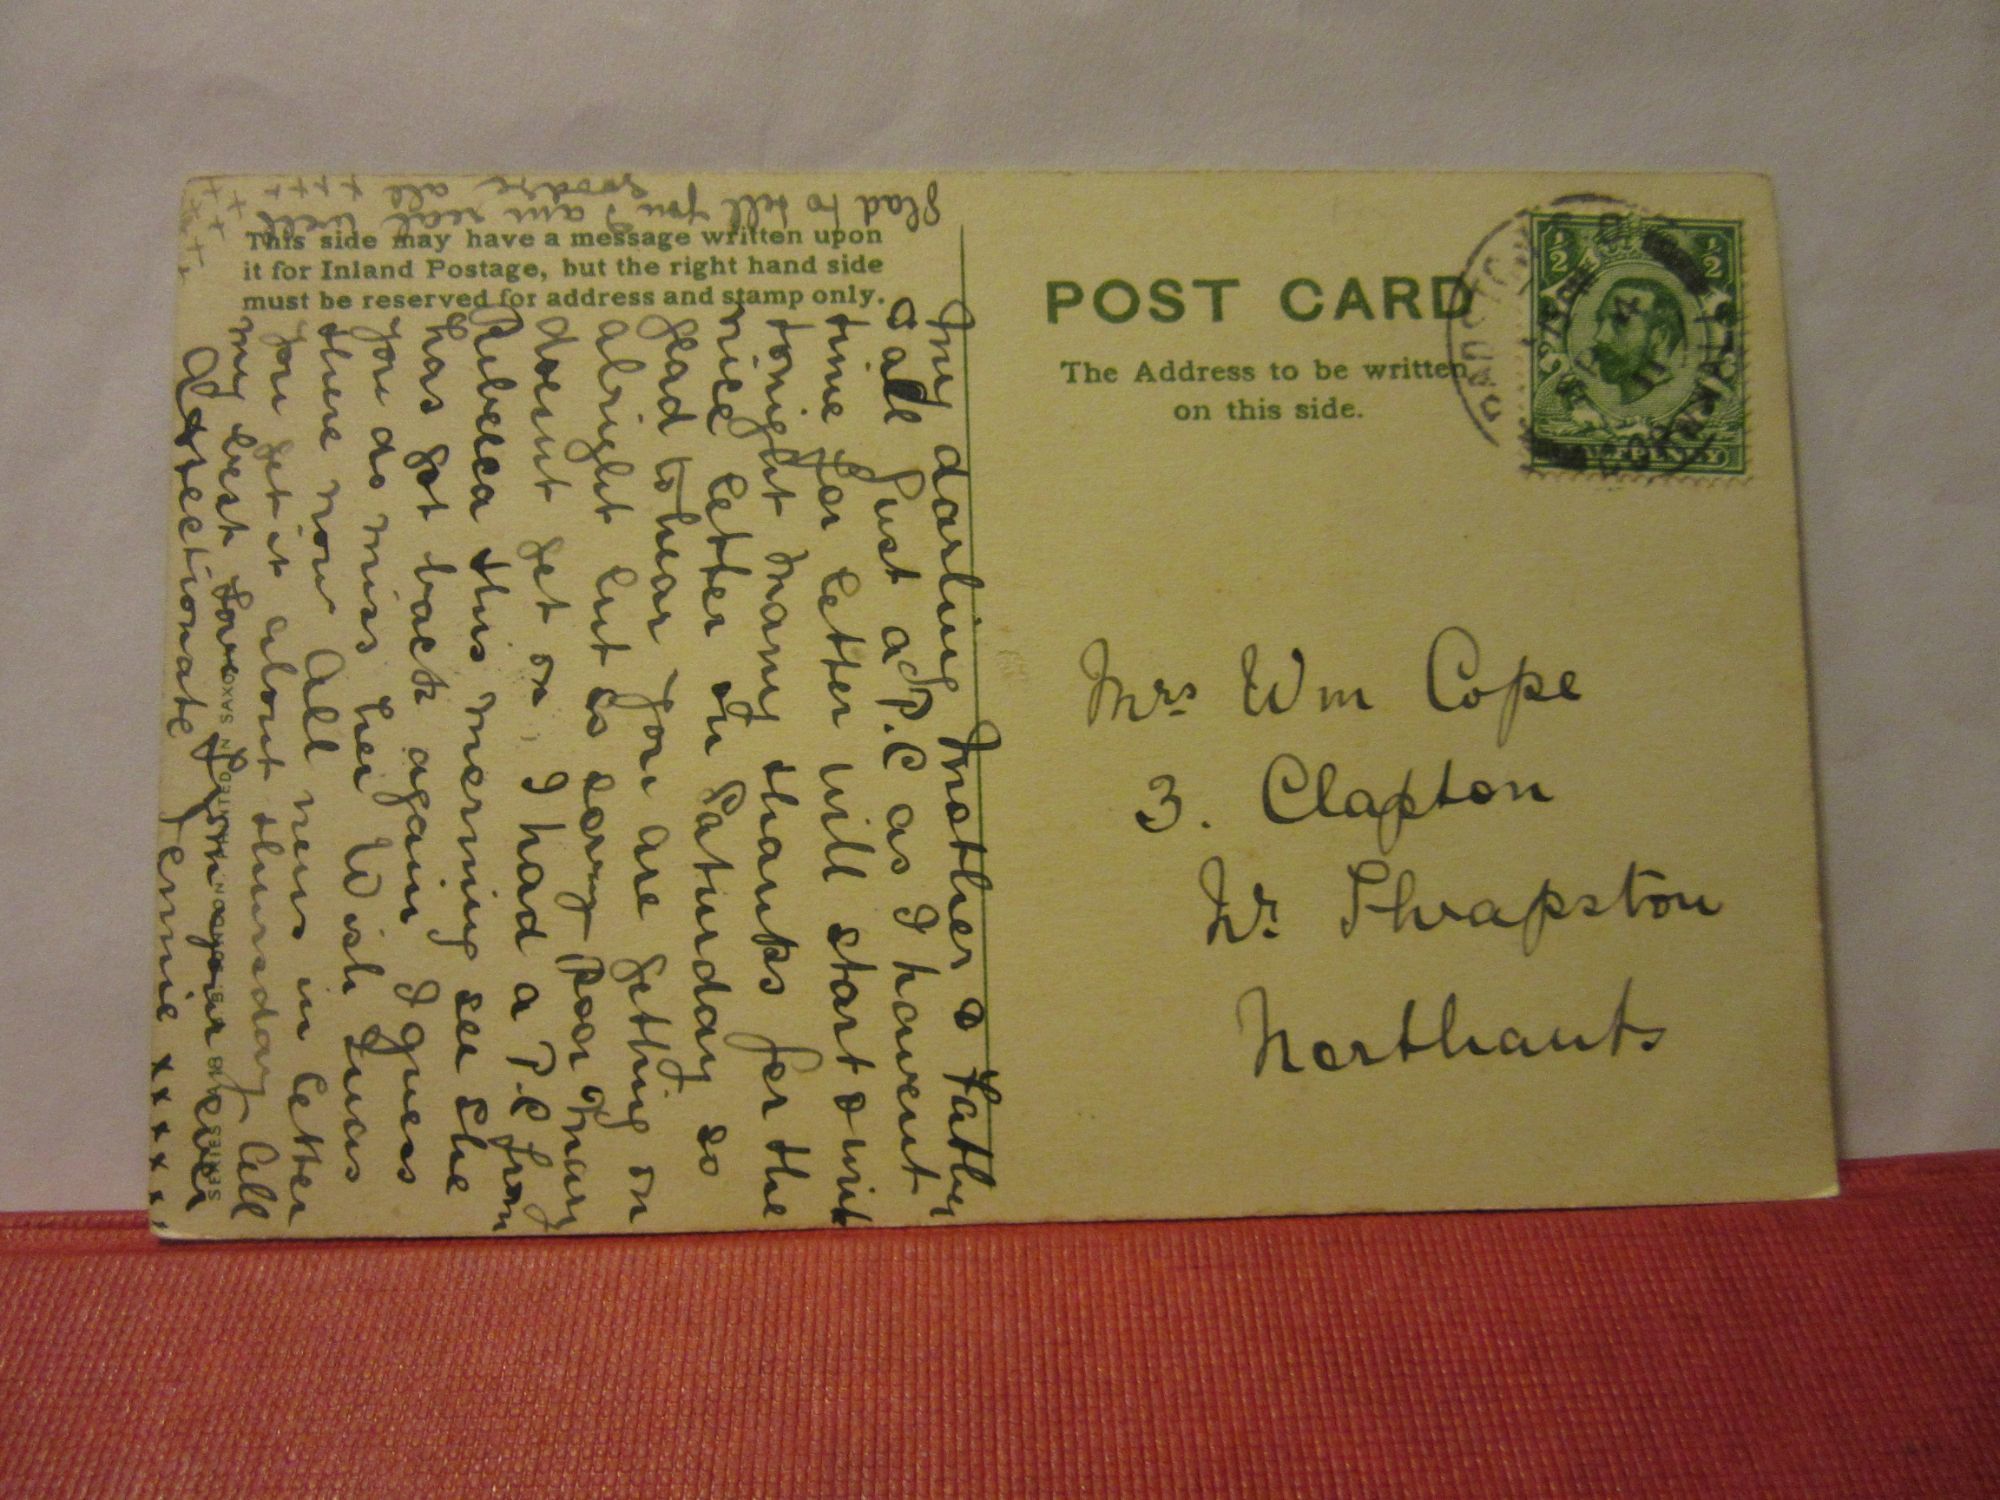 This side may have a message written upon
it for Inland Postage, but the right hand side
must be reserved for address and stamp only.
My darling Mother & Father
& all Just a P.C as I havent
time for letter will start & write
tonight Many thanks for the
nice letter on Saturday so
glad to hear you are getting on
alright but is sorry poor Mary
doesnt get on, I had a P.C from
Rebecca this morning see she
has got back again I guess
you do miss her Wish I was
there now All news in letter
you get it about thursday All
my best love from your ever
Affectionate Jennie x x x x
Glad to tell you I am real well
all
+ + + +
POST CARD
The Address to be written
on this side.
½ ½
Mrs Wm Cope
3. Clapton
Nr Thrapston
Northants